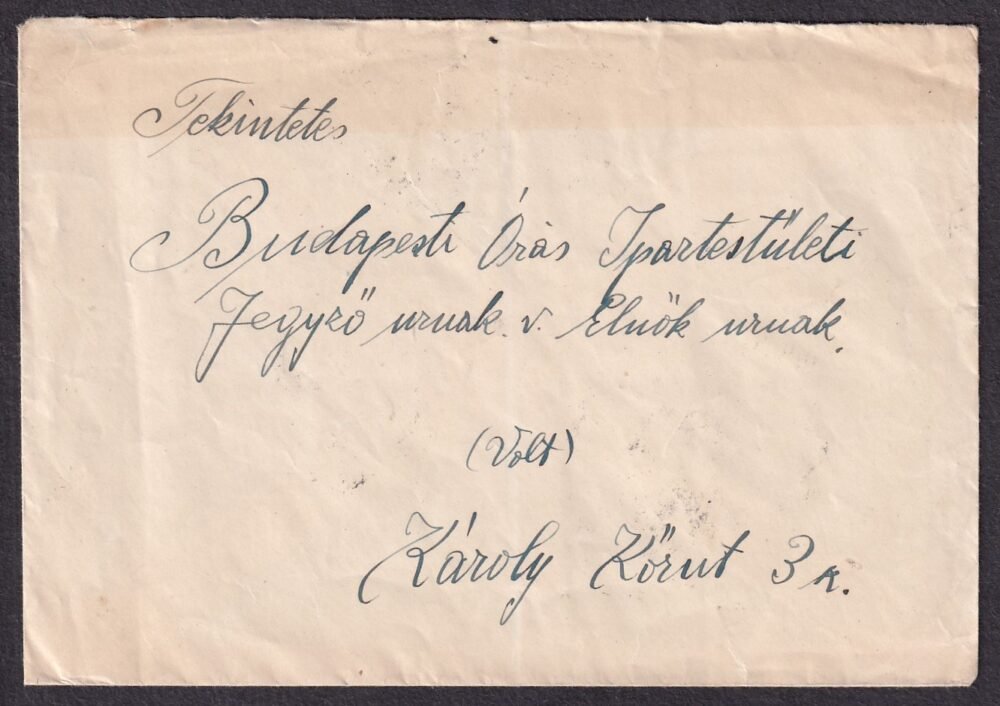 Tekintetes
Budapesti Órás Ipartestületi
Jegyző urnak. v. Elnök urnak.
(Volt)
Károly Körut 3 a.